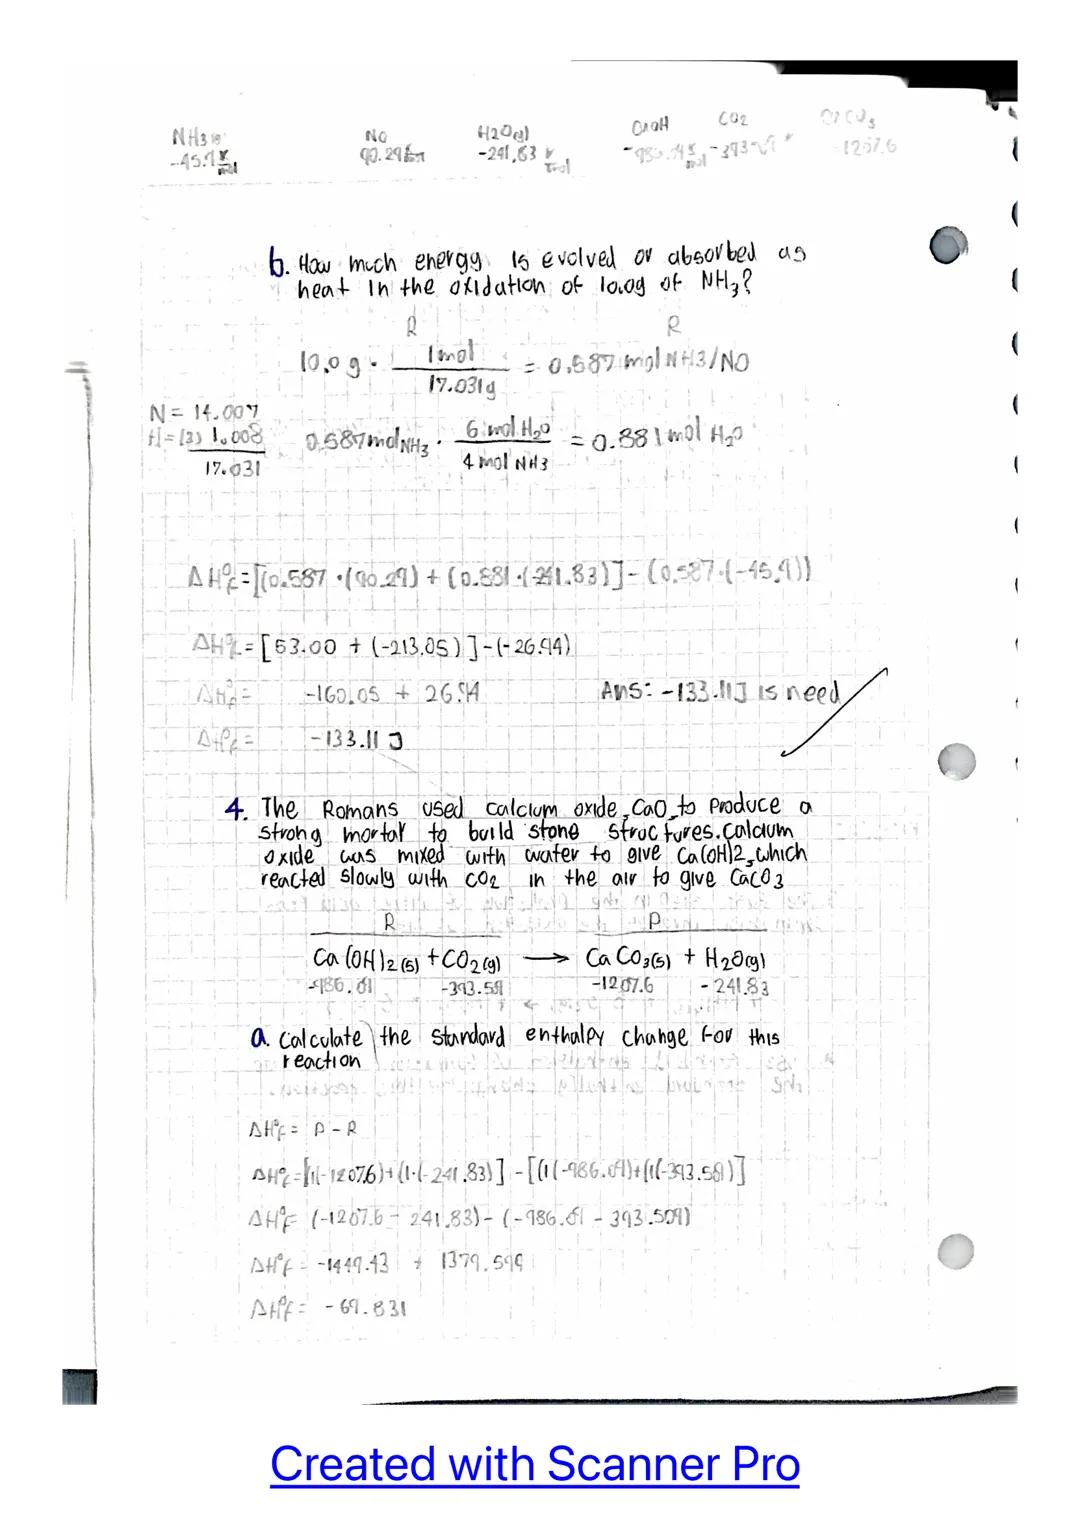 NH3(g) NO H2O(g) CaOH CO2
-45.9 90.29 -241.83 -1207.6
6. How much energy is evolved or absorbed as
heat in the oxidation of 10.0g of NH3?
R R
10.0 g · 1mol = 0.587 mol NH3/NO
17.031g
N = 14.007
H = (3) 1.008 0.587 mol NH3 · 6 mol H2O = 0.881 mol H2O
17.031 4 mol NH3
ΔH°f = [(0.587 · (90.29) + (0.881 · (-241.83)] - (0.587 · (-45.9))
ΔH°f = [53.00 + (-213.05)] - (-26.94)
ΔH°f = -160.05 + 26.94 Ans: -133.11J is need
ΔH°f = -133.11 J
4. The Romans used calcium oxide, CaO, to produce a
strong mortar to build stone structures. calcium
oxide was mixed with water to give Ca(OH)2, which
reacted slowly with CO2 in the air to give CaCO3
R P
Ca(OH)2(s) + CO2(g) → CaCO3(s) + H2O(g)
-1207.6 -241.83
a. Calculate the standard enthalpy change for this
reaction
ΔH°f = P - R
ΔH°f = [1(-1207.6) + (1·(-241.83)] - [(1(-986.09) + (1(-393.509)]
ΔH°f = (-1207.6 - 241.83) - (-986.09 - 393.509)
ΔH°f = -1449.43 + 1379.599
ΔH°f = -69.831
Created with Scanner Pro